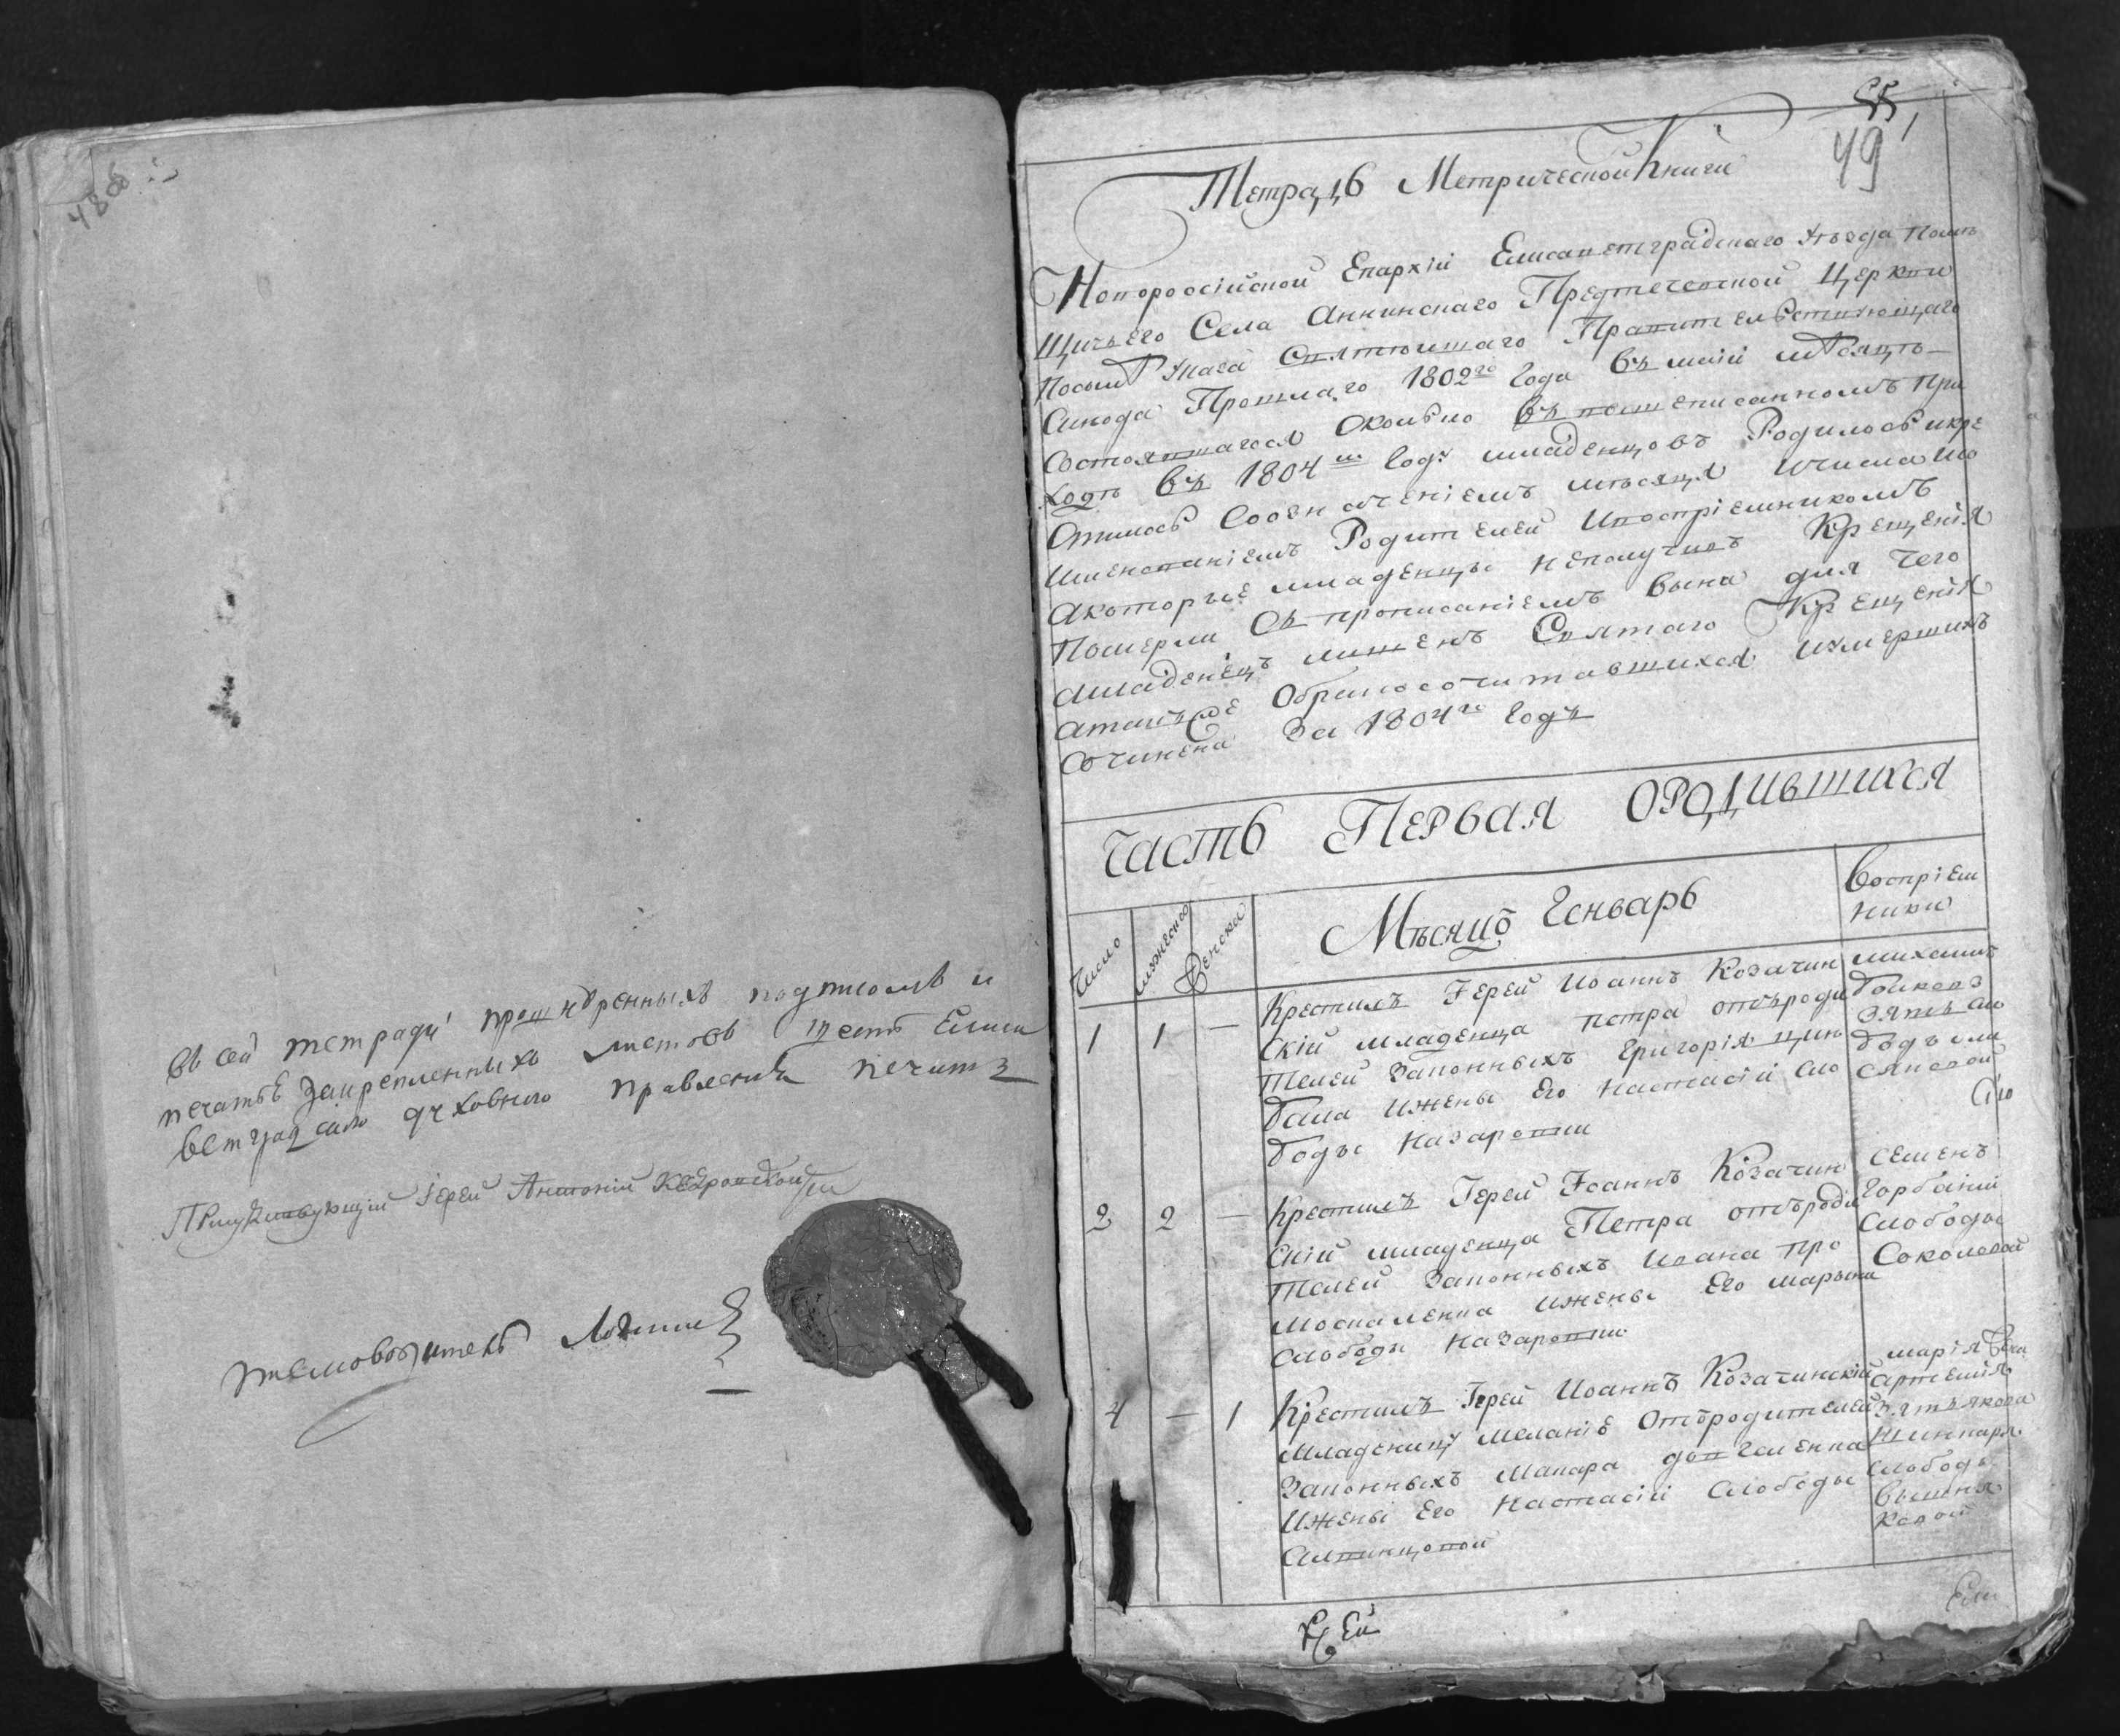 48об
въ сей тетради прошнуренныхъ подписомъ и
печатью закрепленныхъ листовъ шесть Елиса
ветградскаго духовного правления печать
Присудствующий Іерей Антоній
55
49
1
Тетрадь Метрической Книги
Новороссійской Епархіи Елисаветградскаго Уѣзда Помѣ
щичьего Села Аннинскаго Предтечевской Церкви
Посылѣ Указа Святѣйшаго Правительствующаго
Синода Прошлаго 1802го Года Въ маіи мѣсяцѣ
Состоявшагося Околько Въ вышеписанномъ При
ходѣ Въ 1804м Году младенцовъ Родилось икре
стилось Созначеніемъ мѣсяца Ичисла Ио
Именованіемъ Родителей Ивоспріемникомъ
Акоторые младенцы неполучивъ Крещенія
Померли Съ прописаніемъ вына для чего
Младенецъ лишенъ Святаго Крещенія
атакъже Обраносочитавшихся Иумершихъ
Сочинена За 1804го Годъ
Часть Первая Ородившихся
Число
мужеска
Женска
Мѣсяцъ Генварь
Воспріем
ники
1 1 — Крестилъ Іерей Иоаннъ Козачин
скій младенца петра отъроди
телей Законныхъ Григорія цим
бала Ижены Его Настасіи Сло
боды Назаровки
михаилъ
Бойковъ
зять Сло
боды
2 2 — Крестилъ Іерей Іоаннъ Козачин
скій младенца Петра отъроди
телей Законныхъ Ивана про
москаленка Ижены Его марыни
Слободы Назаровки
Семенъ
Горбаній
Слободы
Соколовой
4 — 1 Крестилъ Іерей Иоаннъ Козачинскій
младеницу меланіе Отъродителей
Законныхъ Макара довгаленка
Ижены Его Настасіи Слободы
марія
артемія
зять якова
шинкаря
Слободы